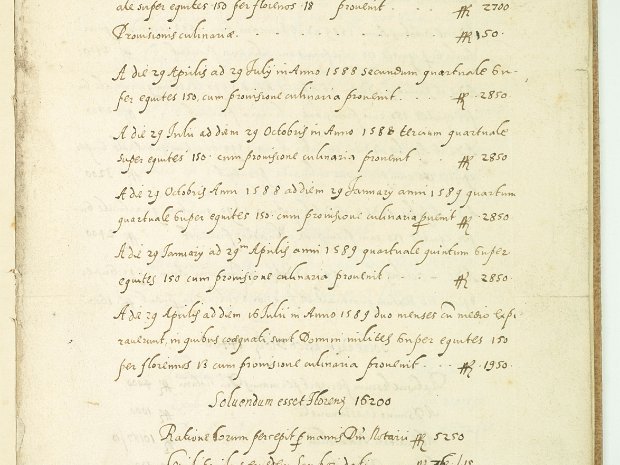 ale super equites 150 per florenos 18 prouenit . ff 2700
Prouisionis culinariæ . . . ff 150.
A die 29 Aprilis ad 29 July in Anno 1588 secundum quartuale su-
per equites 150. cum prouisione culinaria prouenit . . ff . 2850
A die 29 Iulii ad diem 29 Octobris in Anno 1588 tercium quartuale
super equites 150 . cum prouisione culinaria prouenit . . . ff . 2850
A die 29 Octobris Anni 1588 ad diem 29 January anni 1589 quartum
quartuale super equites 150. cum prouisione culinaria puenit ff . 2850
A die 29 January ad 29m Aprilis anni 1589 quartuale quintum super
equites 150 cum prouisione culinaria prouenit . . . ff . 2850.
A die 29 Aprilis ad diem 16 Iulii in Anno 1589 duo menses cū medio expi-
rauerunt, in quibus coæquali sunt Domini milites super equites 150
per florenos 13 cum prouisione culinaria prouenit . . ff . 1950.
Soluendum esset Floreni 16200
Ratione horum percepit p manus Dni Notarii ff 5250